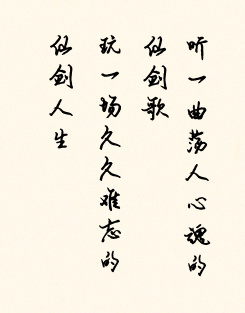 听一曲荡人心魂的
仙剑歌
玩一场久久难忘的
仙剑人生